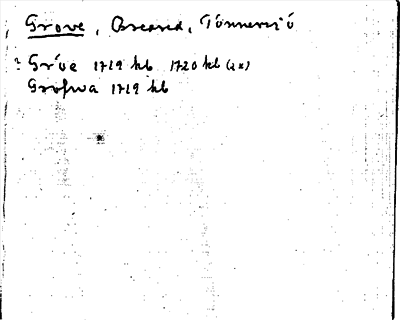 Grove, Breared, Tönnersjö
? Gröe 1719 kb 1720 kb (2x)
Grofwa 1719 kb